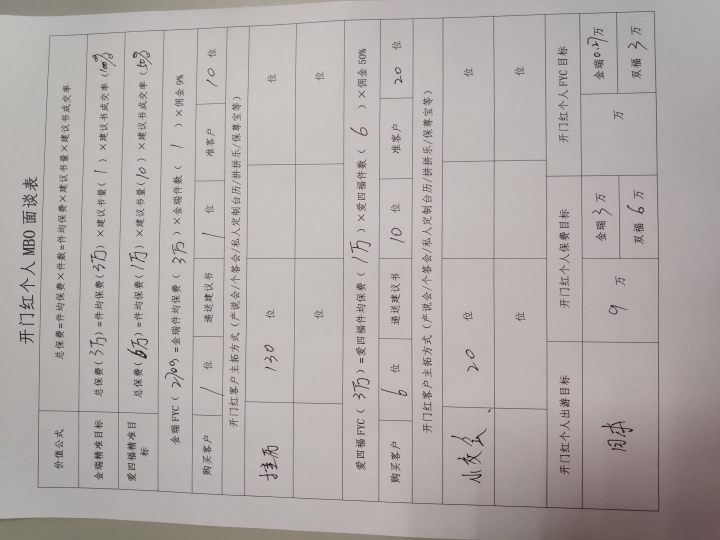 开门红个人 MBO 面谈表
价值公式 总保费=件均保费×件数=件均保费×建议书量×建议书成交率
金瑞精准目标 总保费(3万)=件均保费(3万)×建议书量(1)×建议书成交率(100%)
爱四福精准目标 总保费(6万)=件均保费(1万)×建议书量(10)×建议书成交率(50%)
金瑞 FYC(2700)=金瑞件均保费(3万)×金瑞件数(1)×佣金 9%
购买客户 1 位 递送建议书 1 位 准客户 10 位
开门红客户主拓方式(产说会/个答会/私人定制台历/拼拼乐/保尊宝等)
挂历 130 位 位
位 位
爱四福 FYC(3万)=爱四福件均保费(1万)×爱四福件数(6)×佣金 50%
购买客户 6 位 递送建议书 10 位 准客户 20 位
开门红客户主拓方式(产说会/个答会/私人定制台历/拼拼乐/保尊宝等)
小交会、 20 位 位
位 位
开门红个人出游目标 开门红个人保费目标 开门红个人 FYC 目标
日本 9 万 金瑞 3 万 万 金瑞 0.27 万
双福 6 万 双福 3 万